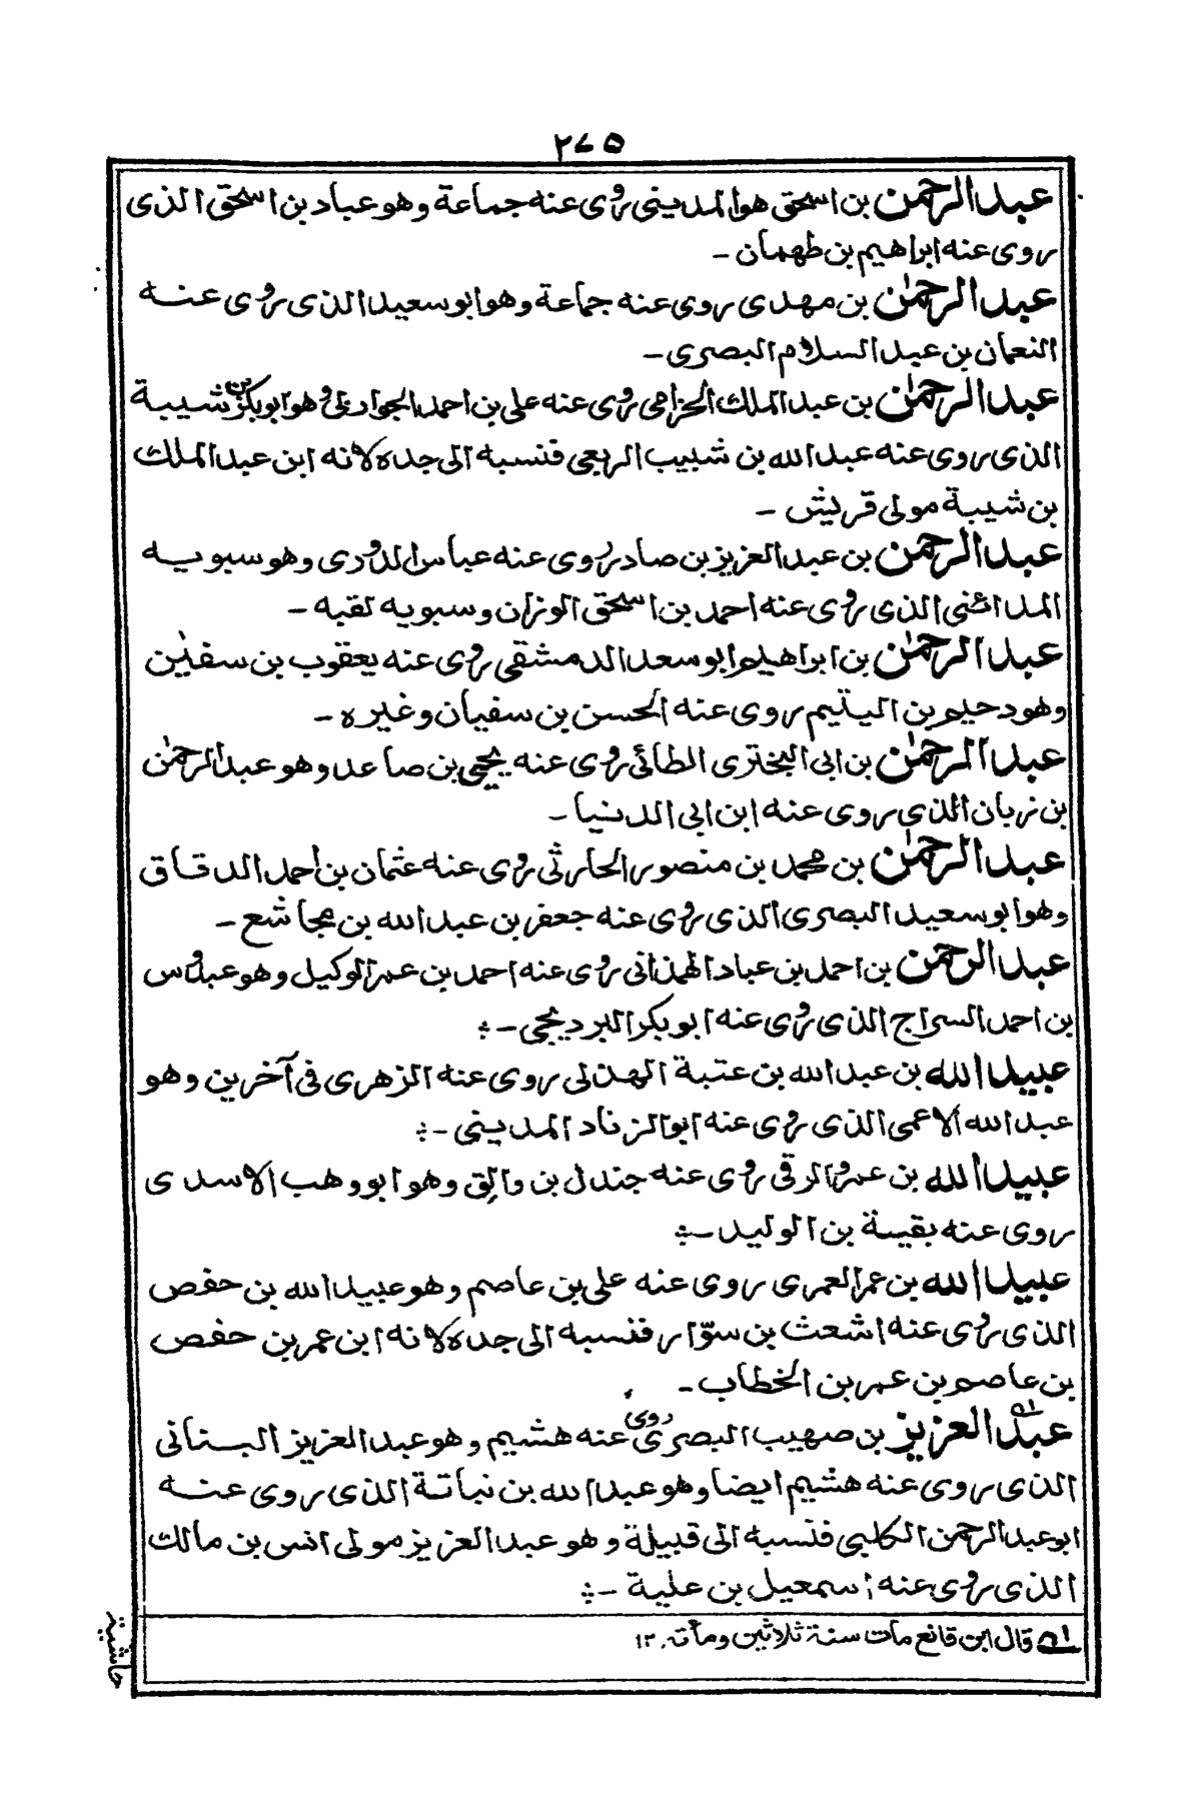 ٢٧٥
عبدالرحمن بن اسحق هو المدینی روی عنه جماعة وهو عباد بن اسحق الذی
روی عنه ابراهیم بن طهمان ـ
عبدالرحمٰن بن مهدی روی عنه جماعة وهو ابو سعید الذی روی عنه
النعمان بن عبد السلام البصری ـ
عبدالرحمٰن بن عبد الملك الحزامی روی عنه علی بن احمد الجواربی وهو ابوبکر بن شیبة
الذی روی عنه عبد الله بن شبیب الربعی فنسبه الی جده لانه ابن عبد الملك
بن شیبة مولی قریش ـ
عبدالرحمن بن عبد العزیز بن صادر روی عنه عباس الدوری وهو سبویه
المدائنی الذی روی عنه احمد بن اسحق الوزان وسبویه لقبه ـ
عبدالرحمٰن بن ابراهیم ابو سعد الدمشقی روی عنه یعقوب بن سفیٰن
وهو دحیم بن الیتیم روی عنه الحسن بن سفیان وغیره ـ
عبدالرحمٰن بن ابی البختری الطائی روی عنه یحیی بن صاعد وهو عبد الرحمٰن
بن زبان الذی روی عنه ابن ابی الدنیا ـ
عبدالرحمٰن بن محمد بن منصور الحارثی روی عنه عثمان بن احمد الدقاق
وهو ابو سعید البصری الذی روی عنه جعفر بن عبد الله بن مجاشع ـ
عبدالرحمن بن احمد بن عباد الهمذانی روی عنه احمد بن عمر الوکیل وهو عبدوس
بن احمد السراج الذی روی عنه ابو بکر البردیجی ـ
عبید الله بن عبد الله بن عتبة الهذلی روی عنه الزهری فی آخرین وهو
عبد الله الاعمی الذی روی عنه ابو الزناد المدینی ـ
عبید الله بن عمرو الرقی روی عنه جندل بن والق وهو ابو وهب الاسدی
روی عنه بقیة بن الولید ـ
عبید الله بن عمر العمری روی عنه علی بن عاصم وهو عبید الله بن حفص
الذی روی عنه اشعث بن سوّار فنسبه الی جده لانه ابن عمر بن حفص
بن عاصم بن عمر بن الخطاب ـ
عبد العزیز بن صهیب البصری روی عنه هشیم وهو عبد العزیز البنانی
الذی روی عنه هشیم ایضا وهو عبد الله بن نباتة الذی روی عنه
ابو عبد الرحمن الکلبی فنسبه الی قبیلة وهو عبد العزیز مولی انس بن مالك
الذی روی عنه اسمعیل بن علیة ـ
١ه قال ابن قانع مات سنة ثلاثین ومأته. ١٢
حاشیة